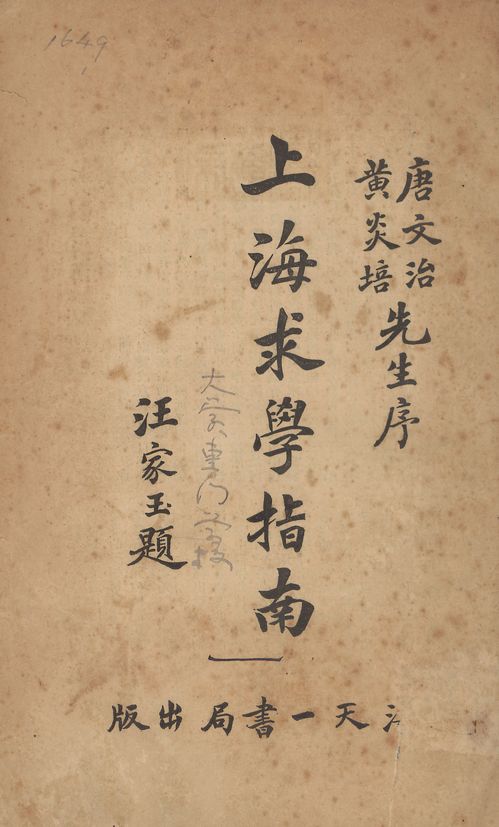 1649
唐文治
黄炎培
先生序
上海求學指南
大学専门学校
汪家玉題
天一書局出版